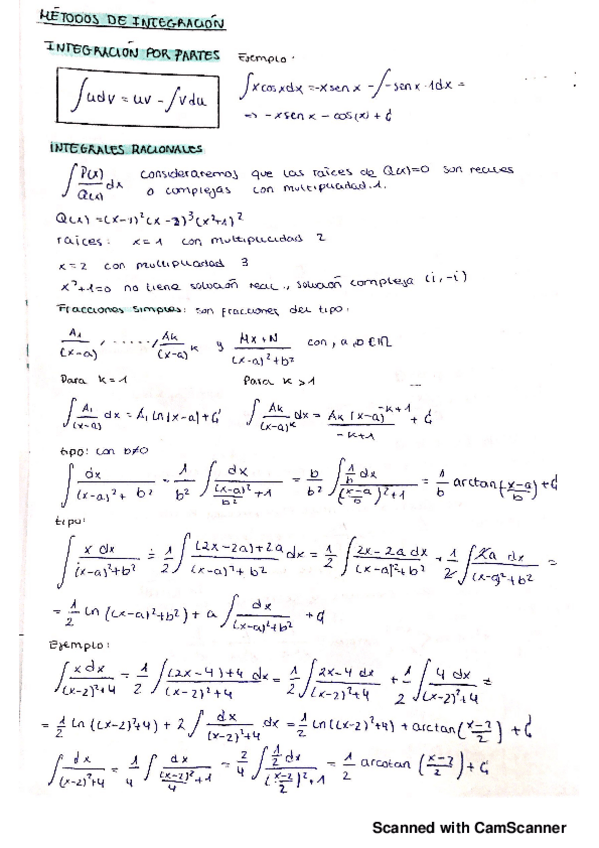 MÉTODOS DE INTEGRACIÓN
INTEGRACIÓN POR PARTES
Ejemplo:
∫udv = uv - ∫vdu
∫xcosxdx = -xsenx - ∫-senx·1dx =
=> -xsenx - cos(x) + C
INTEGRALES RACIONALES
∫P(x)/Q(x) dx consideraremos que las raíces de Q(x)=0 son reales
o complejas con multiplicidad 1.
Q(x) = (x-1)²(x-2)³(x²+1)²
raíces: x=1 con multiplicidad 2
x=2 con multiplicidad 3
x²+1=0 no tiene solución real, solución compleja (i,-i)
Fracciones simples: son fracciones del tipo:
A₁/(x-a), ......, Ak/(x-a)^k y Mx+N/(x-a)²+b² con, a, b ∈ ℝ
Para k=1 Para k>1
∫A₁/(x-a) dx = A₁ Ln|x-a| + C ∫Ak/(x-a)^k dx = Ak (x-a)^(-k+1)/(-k+1) + C
tipo: con b≠0
∫dx/((x-a)²+b²) = 1/b² ∫dx/((x-a)²/b²+1) = b/b² ∫(1/b dx)/((x-a/b)²+1) = 1/b arctan(x-a/b) + C
tipo:
∫x dx/((x-a)²+b²) = 1/2 ∫((2x-2a)+2a)/((x-a)²+b²) dx = 1/2 ∫2x-2a dx/((x-a)²+b²) + 1/2 ∫2a dx/((x-a)²+b²) =
= 1/2 ln((x-a)²+b²) + a ∫dx/((x-a)²+b²) + C
Ejemplo:
∫x dx/((x-2)²+4) = 1/2 ∫((2x-4)+4 dx)/((x-2)²+4) = 1/2 ∫2x-4 dx/((x-2)²+4) + 1/2 ∫4 dx/((x-2)²+4) =
= 1/2 ln((x-2)²+4) + 2 ∫dx/((x-2)²+4) dx = 1/2 ln((x-2)²+4) + arctan(x-2/2) + C
∫dx/((x-2)²+4) = 1/4 ∫dx/((x-2)²/4+1) = 2/4 ∫(1/2 dx)/((x-2/2)²+1) = 1/2 arcotan(x-2/2) + C
Scanned with CamScanner